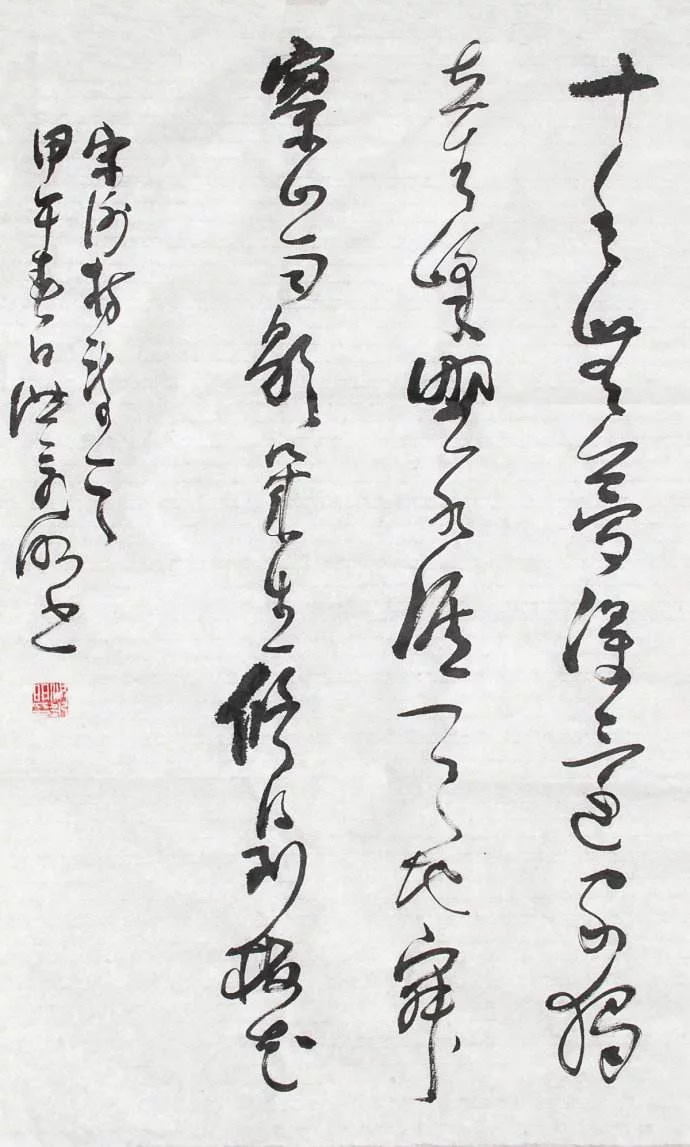 十年無夢得還家獨
立青峰野水涯天地寂
寥山雨歇幾生修得到梅花
宋謝枋詩一首
甲午春日洪書